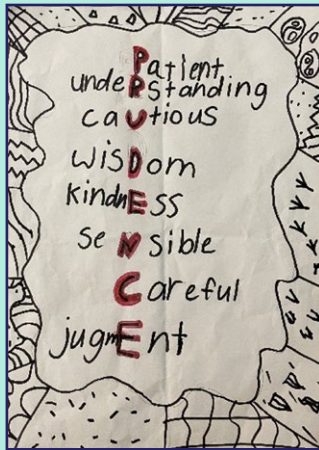 Patient
undeRstanding
caUtious
wisDom
kindnEss
seNsible
Careful
jugmEnt